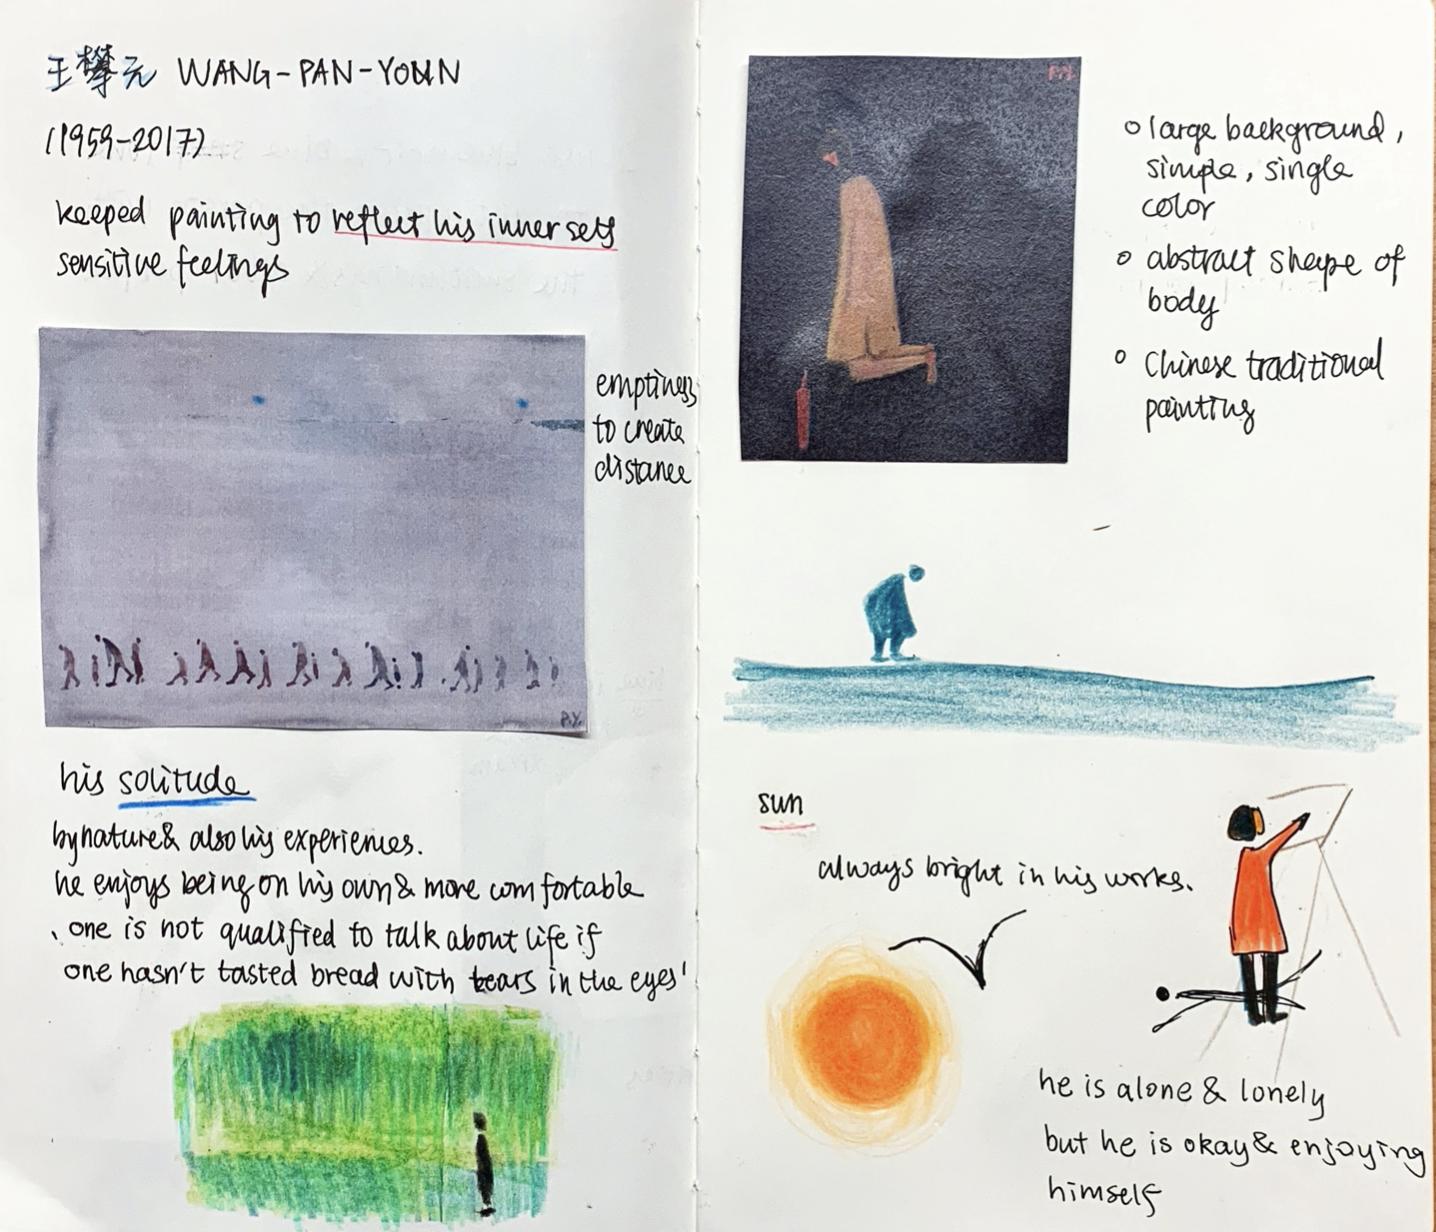 王攀元 WANG-PAN-YOUN
(1959-2017)
keeped painting to reflect his inner sets
sensitive feelings
emptiness
to create
distance
P.Y.
his solitude
by nature & also his experiences.
he enjoys being on his own & more comfortable
、one is not qualified to talk about life if
one hasn't tasted bread with tears in the eyes'
P.Y.
○ large background,
simple, single
color
○ abstract shape of
body
○ Chinese traditional
painting
sun
always bright in his works.
he is alone & lonely
but he is okay & enjoying
himself